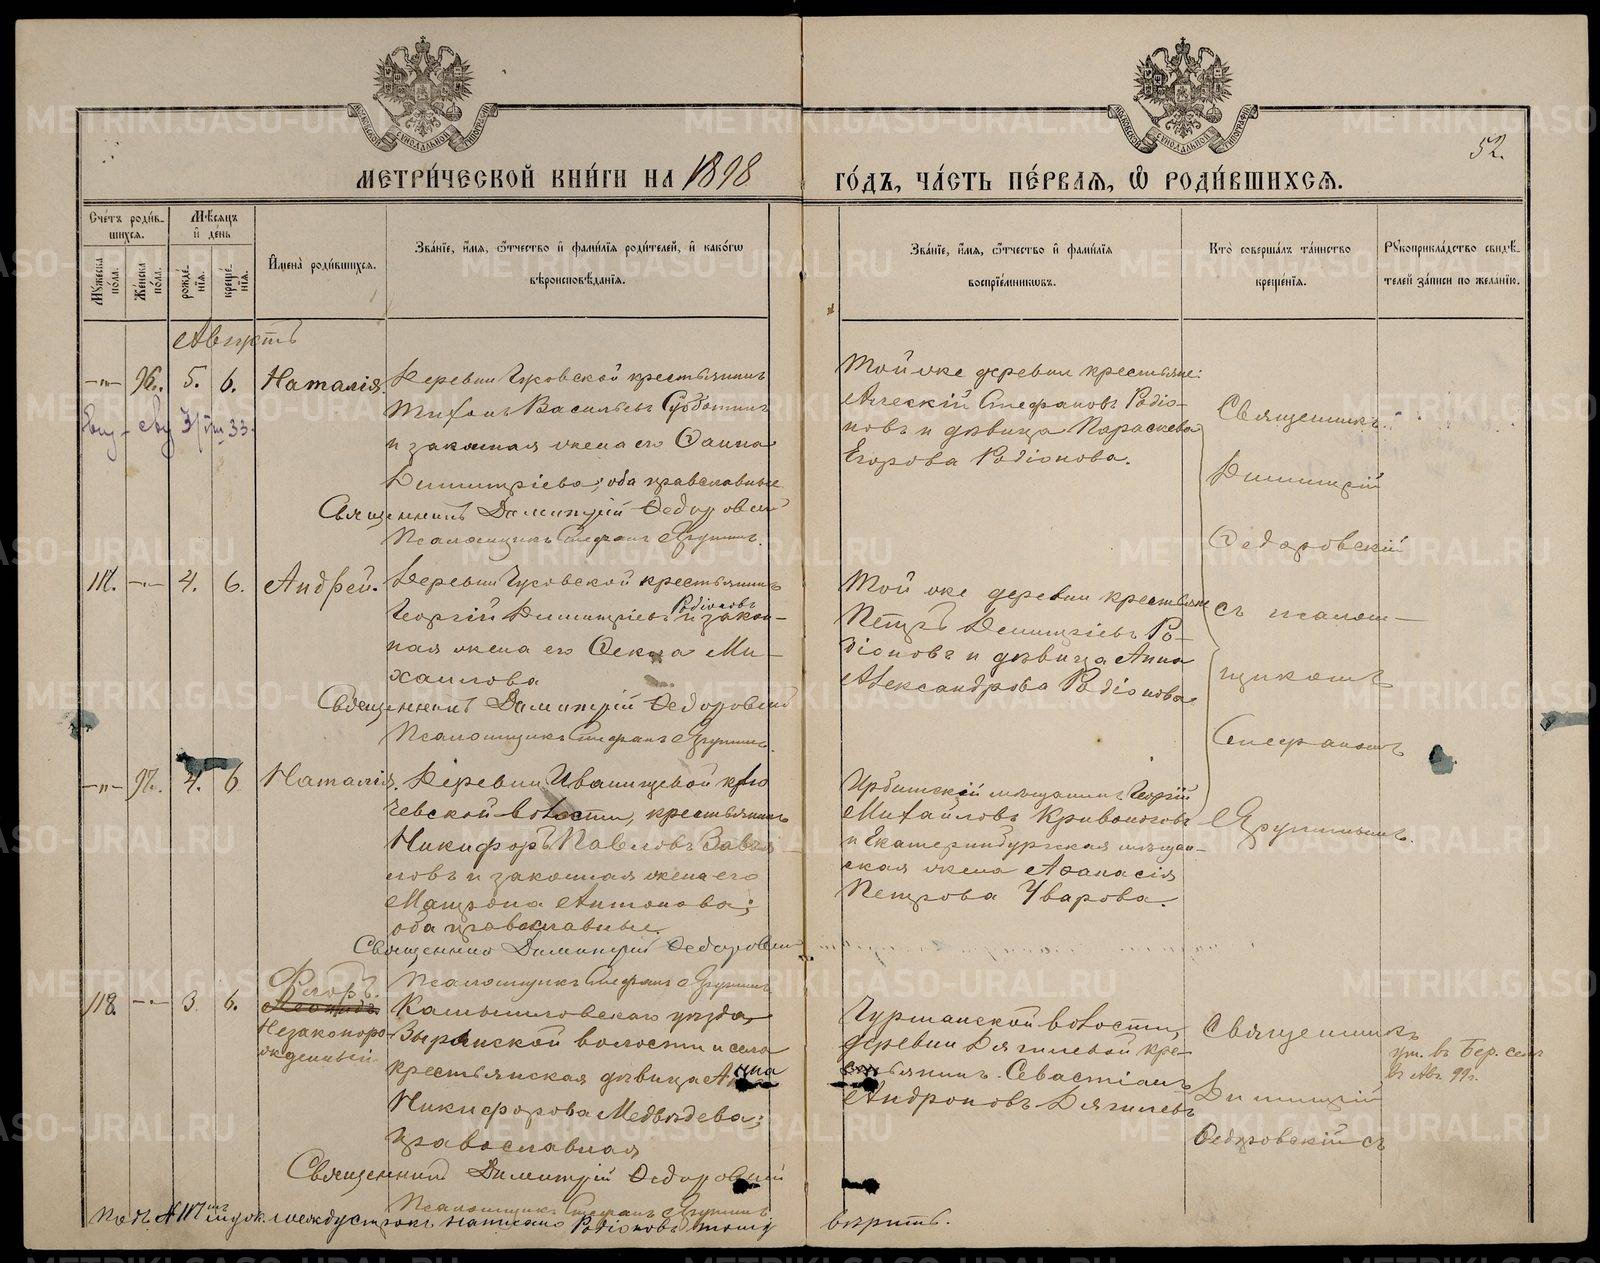 МЕТРИ́ЧЕСКОЙ КНИ́ГИ НА 1898 ГО́ДЪ, ЧА́СТЬ ПЕ́РВАѦ, Ѡ РОДИ́ВШИХСѦ.
52.
Сче́тъ роди́в-
шихсѧ.
Мѣ́сѧцъ
и҆ де́нь
Мꙋ́жеска по́ла.
Же́нска по́ла.
рожде́-
нїѧ.
креще́-
нїѧ.
И҆мена̀ роди́вшихсѧ.
Зва́нїе, и҆́мѧ, ѻ҆́тчество и҆ фами́лїѧ роди́телей, и҆ како́гѡ
вѣроисповѣ́данїѧ.
Зва́нїе, и҆́мѧ, ѻ҆́тчество и҆ фами́лїѧ
воспрїе́мникѡвъ.
Кто̀ соверша́лъ та́инство
креще́нїѧ.
Рꙋкоприкла́дство свидѣ́-
телей за́писи по жела́нїю.
Августъ
96. 5. 6. Наталія.
Деревни Чусовской крестьянинъ
Тихонъ Васильевъ Субботинъ
и законная жена его Фаина
Димитріева; оба православные
Священникъ Димитрій Федоровскій
Псаломщикъ Стефанъ Ярушинъ.
Той же деревни крестьяне:
Алексій Стефановъ Родіо-
новъ и дѣвица Параскева
Егорова Родіонова.
Священникъ
Димитрій
Федоровскій
съ псалом-
щикомъ
Стефаномъ
Ярушинымъ.
117. 4. 6. Андрей.
Деревни Чусовской крестьянинъ
Родіоновъ
Георгій Димитріевъ и закон-
ная жена его Фекла Ми-
хаилова
Священникъ Димитрій Федоровскій
Псаломщикъ Стефанъ Ярушинъ.
Той же деревни крестьяне
Петръ Димитріевъ Ро-
діоновъ и дѣвица Анна
Александрова Родіонова.
97. 4. 6 Наталія.
Деревни Иванищевой Клю-
чевской волости, крестьянинъ
Никифоръ Павловъ Завья-
ловъ и законная жена его
Матрона Антонова;
оба православные.
Священникъ Димитрій Федоровскій
Псаломщикъ Стефанъ Ярушинъ
Ирбитскій мѣщанинъ Георгій
Михайловъ Кривоноговъ
и Екатеринбургская мѣщан-
ская жена Афанасія
Петрова Уварова.
118. 3. 6.
Флоръ.
Леонидъ.
Незаконоро-
жденный
Камышловскаго уѣзда,
волости и села
крестьянская дѣвица Анна
Никифорова Медвѣдева;
православная
Священникъ Димитрій Федоровскій
Псаломщикъ Стефанъ Ярушинъ
волости,
деревни Дягилевой кре-
стьянинъ Севастіанъ
Андроновъ Дягилевъ
Священникъ
Димитрій
Федоровскій съ
ум. въ Бер. селѣ
въ Авг. 99 г.
Подъ № 117 между строкъ написано Родіоновъ тому вѣрить.
METRIKI.GASO-URAL.RU